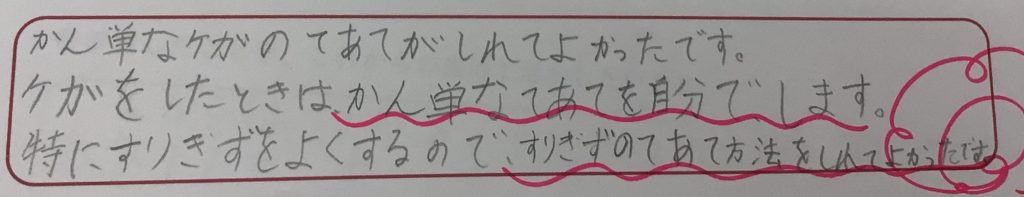 かん単なケガのてあてがしれてよかったです。
ケガをしたときは、かん単なてあてを自分でします。
特にすりきずをよくするので、すりきずのてあて方法をしれてよかったです。